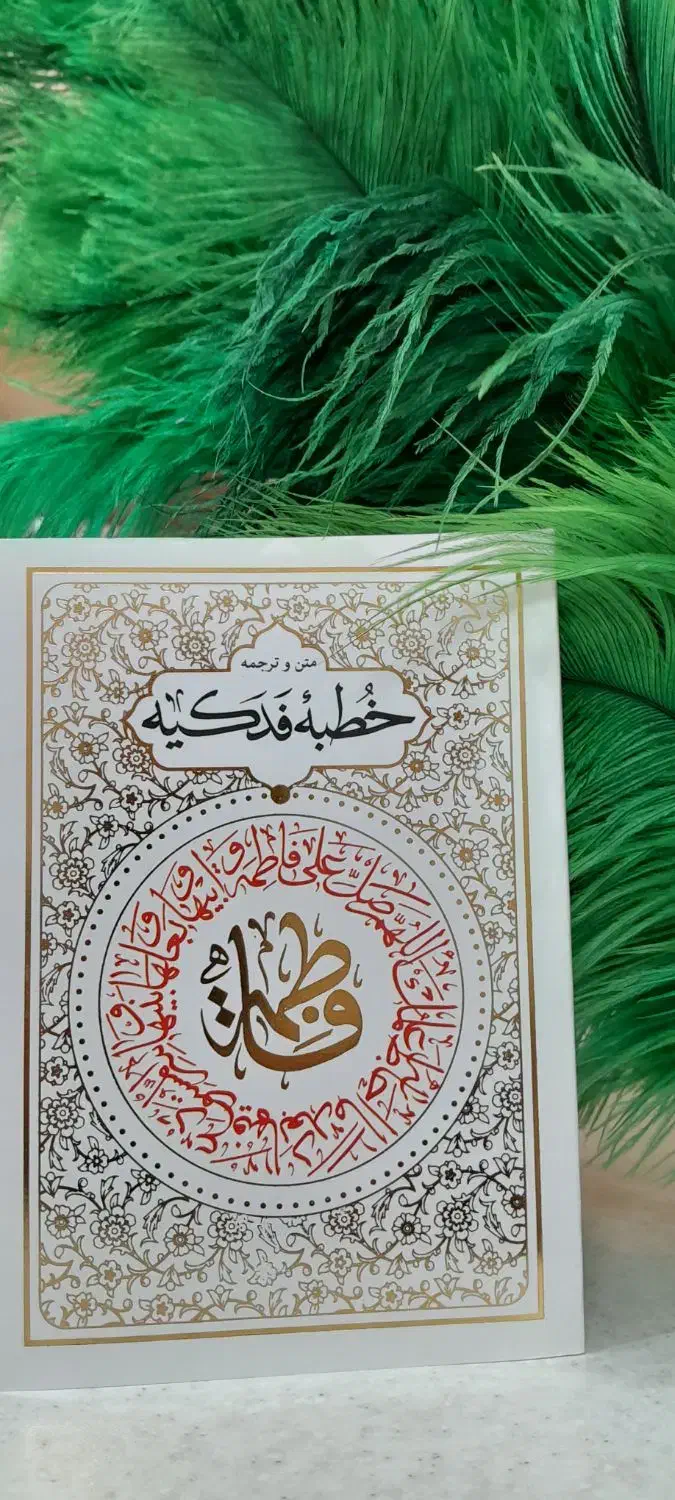 متن و ترجمه
خُطبهٔ فَدَکیه
اللهم صل علی فاطمه و ابیها و بعلها و بنیها
فاطمة